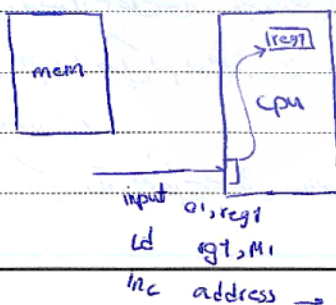 reg1
mem
cpu
input 01, reg1
Ld rg1, M1
inc address